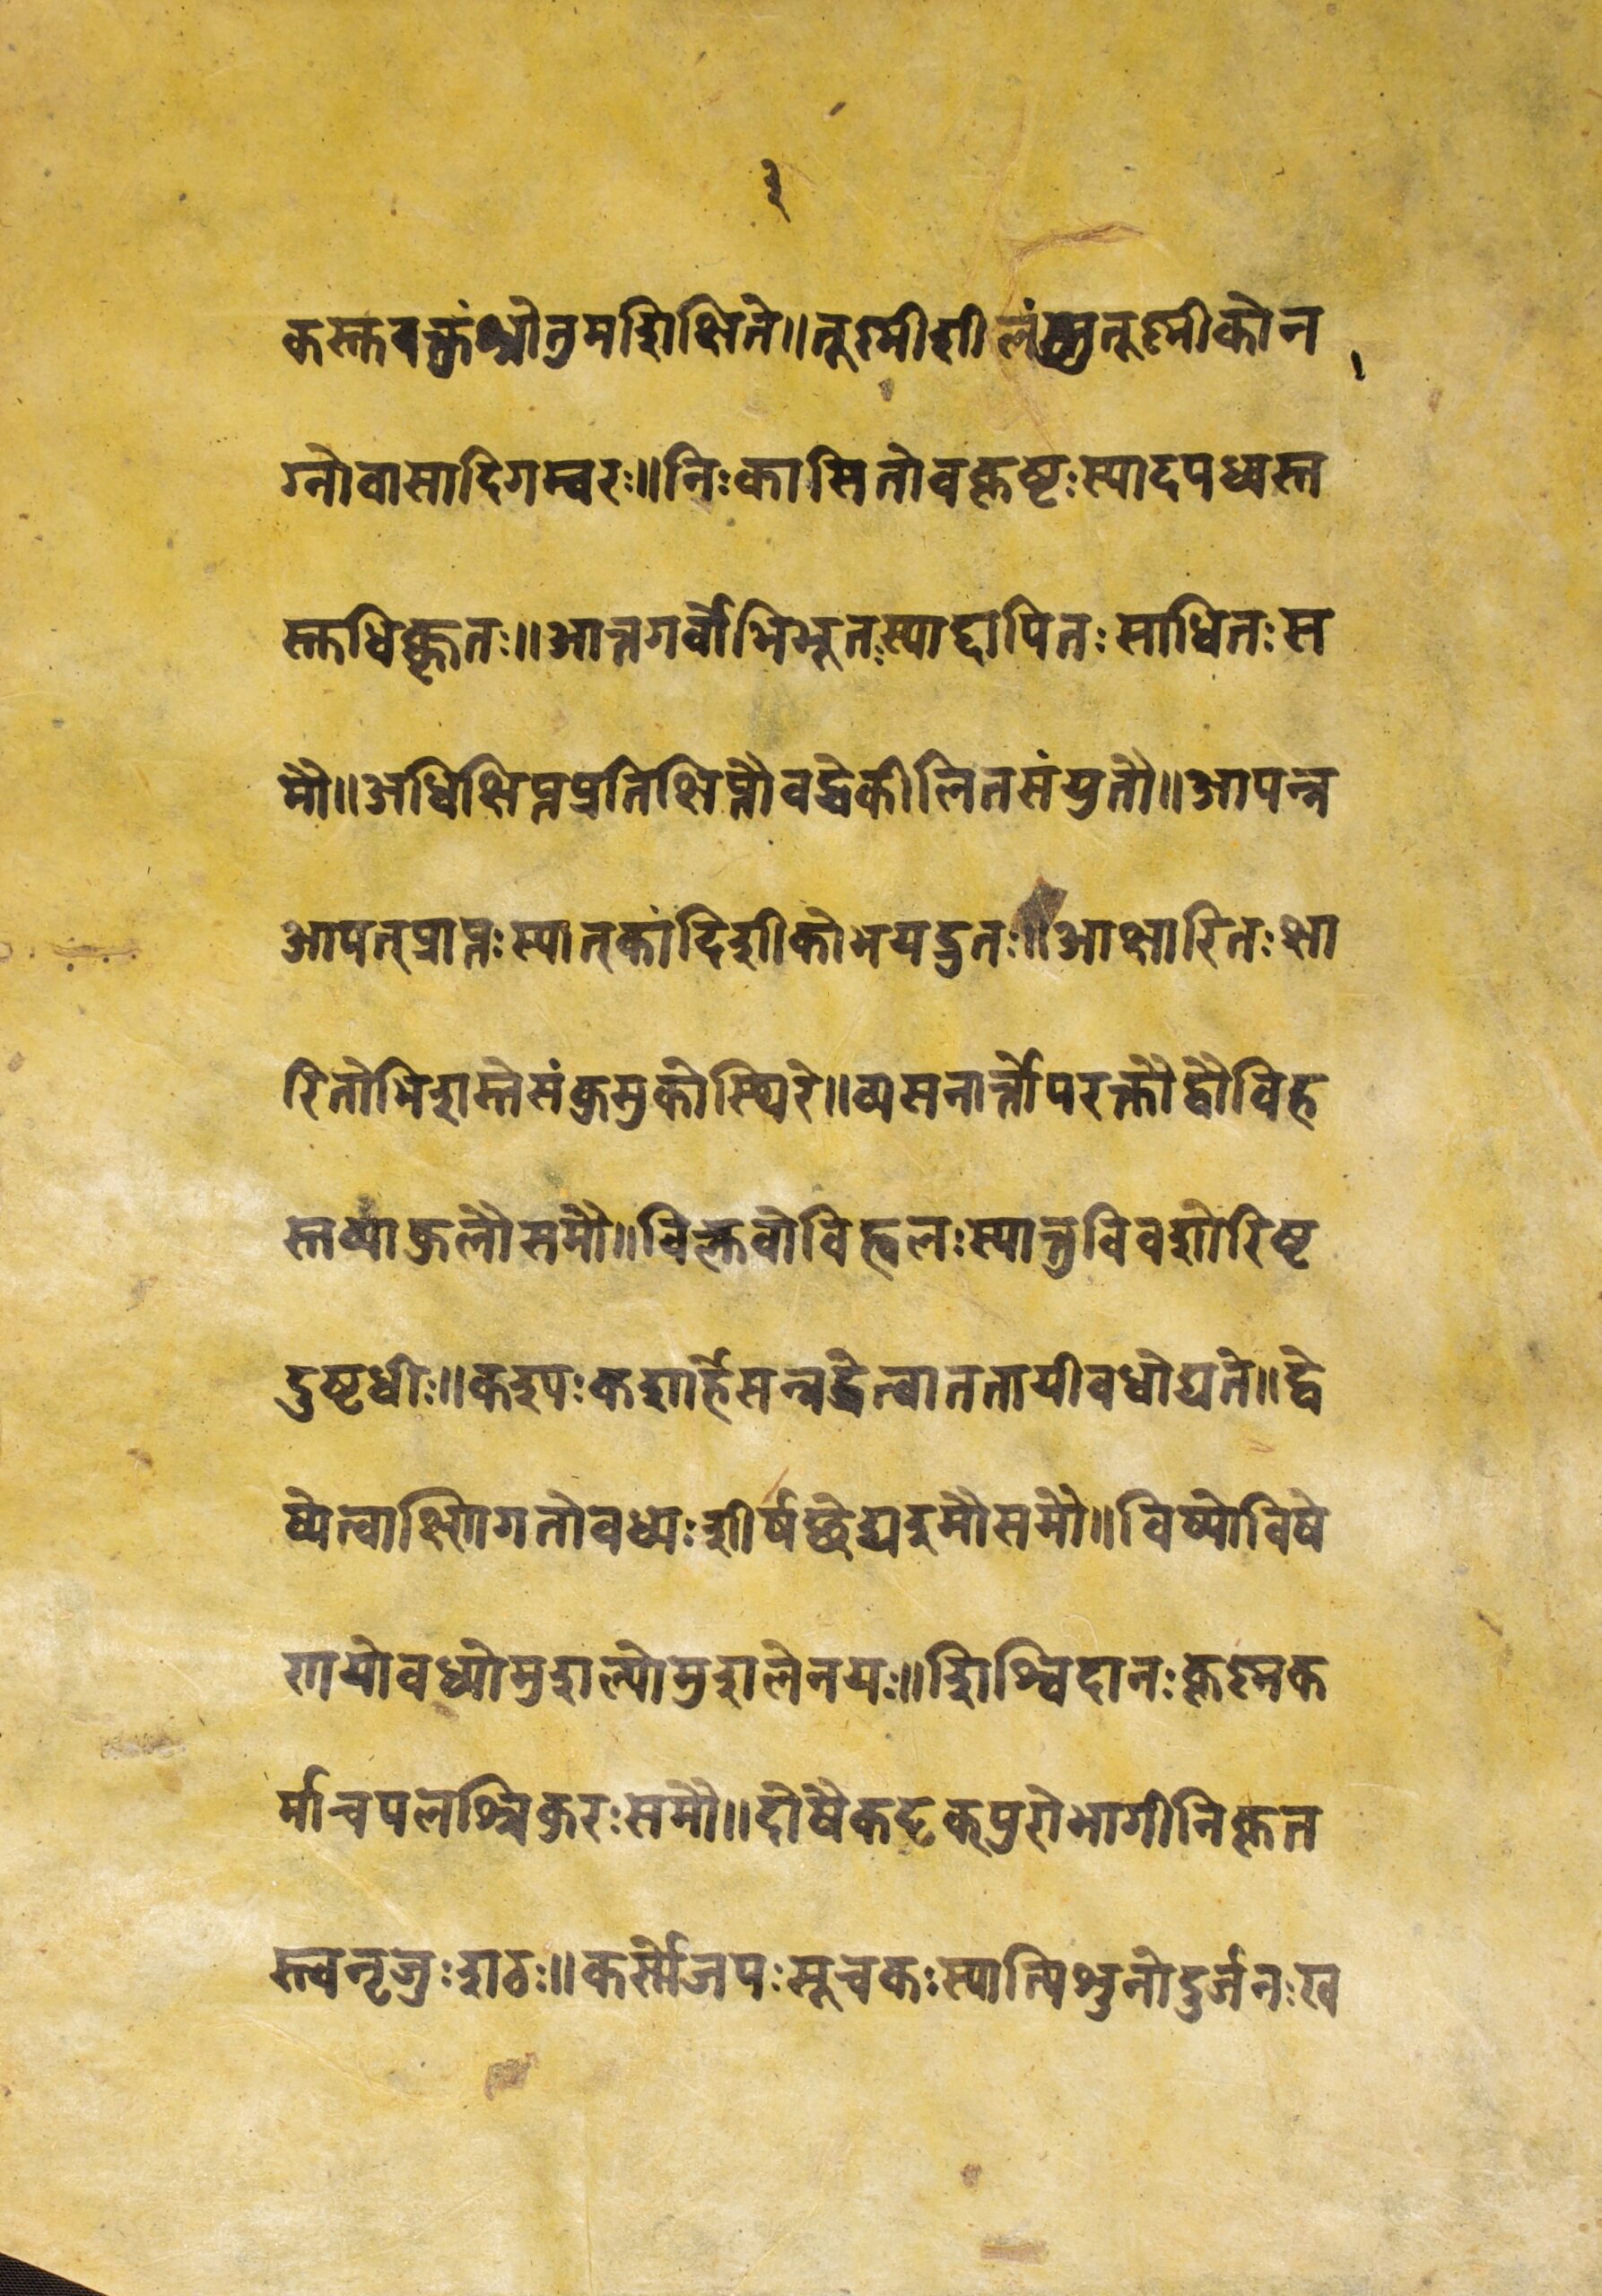 ३
कस्तवक्तुंश्रोतुमशिक्षिते॥तूष्मीशीलंस्तुतूष्मीकोन
ग्नोवासादिगम्वरः॥निःकासितोवकृष्टःस्यादपध्वस्त
स्तधिक्कृतः॥आत्तगर्वोभिभूतःस्याद्दापितःसाधितःस
मौ॥अधिक्षिप्तप्रतिक्षिप्तौवद्धेकीलितसंयुतौ॥आपन्न
आपत्प्राप्तःस्यात्कांदिशीकोभयद्रुतः॥आक्षारितःक्षा
रितोभिशस्तेसंकुसुकोस्थिरे॥व्यसनार्त्तोपरक्तौद्वौविह
स्तव्याकुलौसमौ॥विक्लवोविह्वलःस्यात्तुविवशोरिष्ट
दुष्टधीः॥कश्यःकशार्हेसन्नद्धेत्वाततायीवधोद्यते॥द्वे
ष्येत्वाक्षिगतोवध्यःशीर्षछेद्यइमौसमौ॥विष्योविषे
णयोवध्योमुशल्योमुशलेनयः॥शिश्विदानःकृष्मक
र्माचपलश्चिकुरःसमौ॥दोषैकदृक्पुरोभागीनिकृत
स्त्वनृजुःशठः॥कर्स्मेजपःसूचकःस्यात्पिशुनोदुर्जनःख